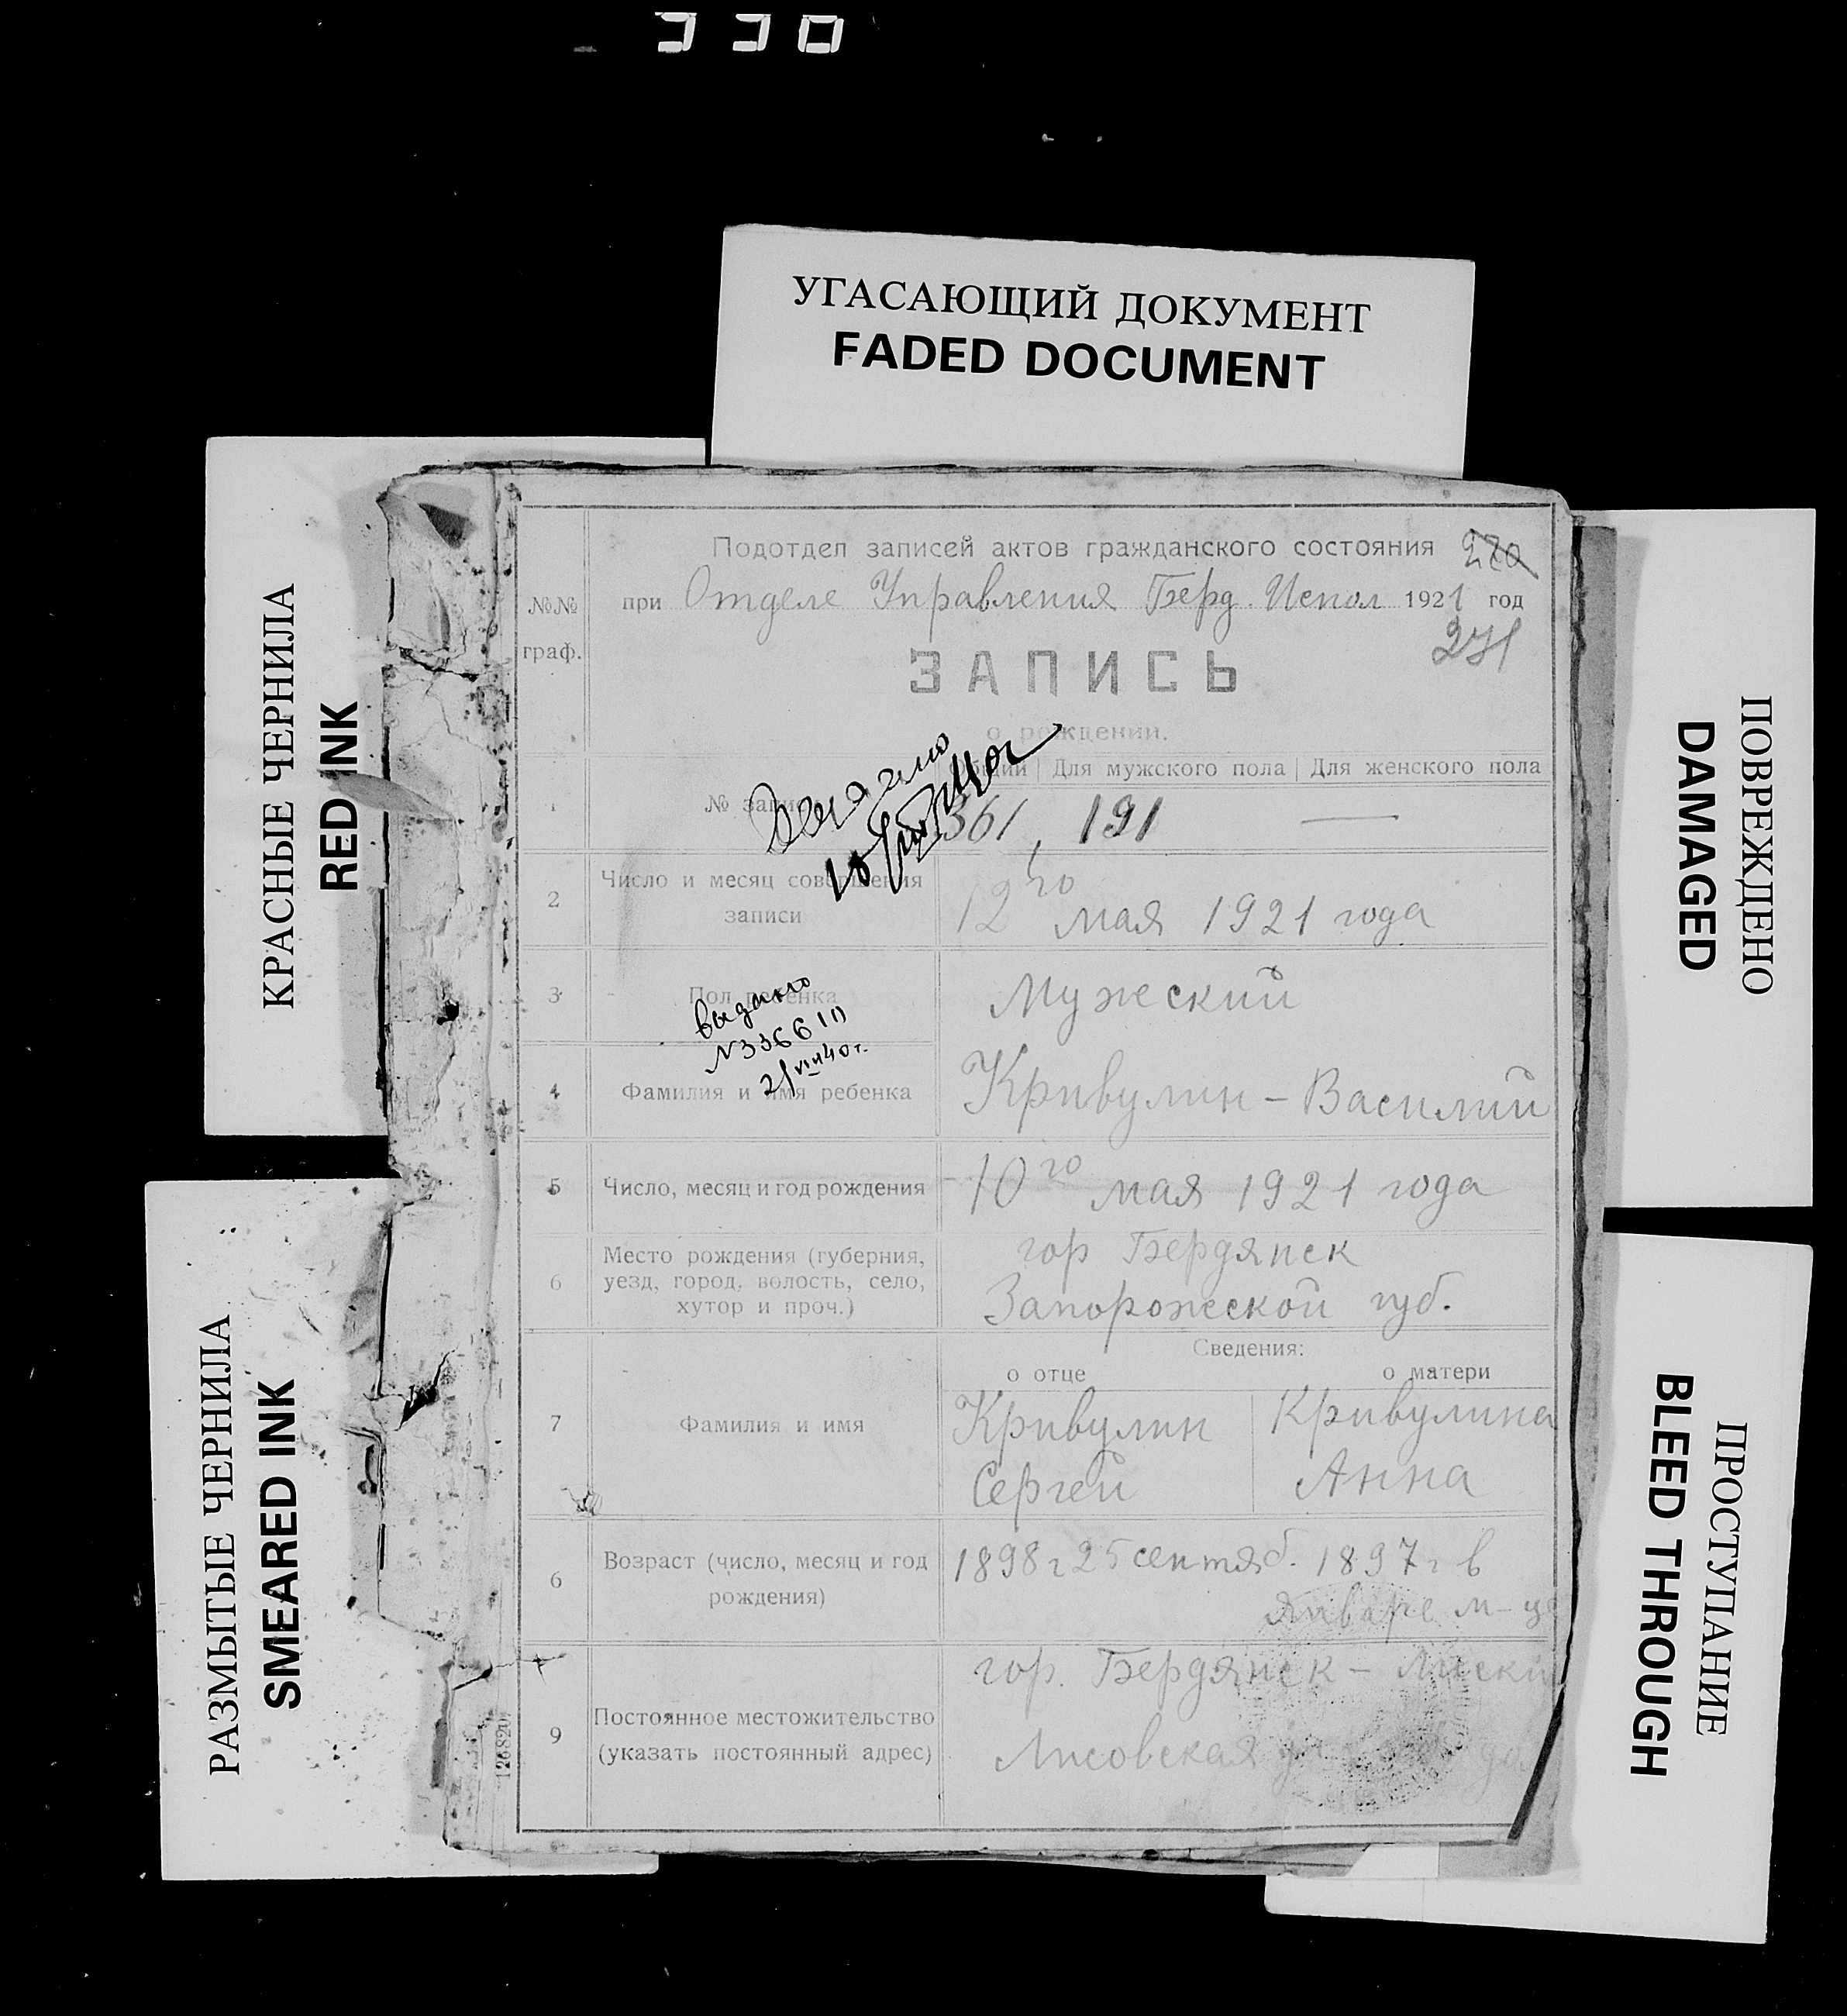 330
УГАСАЮЩИЙ ДОКУМЕНТ
FADED DOCUMENT
КРАСНЫЕ ЧЕРНИЛА
RED INK
РАЗМЫТЫЕ ЧЕРНИЛА
SMEARED INK
ПОВРЕЖДЕНО
DAMAGED
ПРОСТУПАНИЕ
BLEED THROUGH
Подотдел записей актов гражданского состояния 270
№№ при Отделе Управления Берд. Испол 1921 год
граф. 271
ЗАПИСЬ
о рождении.
Для мужского пола Для женского пола
1 № 361, 191 —
2 Число и месяц совершения записи
12го мая 1921 года
3 Пол ребенка Мужеский
выдано
N 3366
21/VIII 40 г.
4 Фамилия и имя ребенка Кривулин - Василий
5 Число, месяц и год рождения 10го мая 1921 года
6 Место рождения (губерния,
уезд, город, волость, село,
хутор и проч.)
гор Бердянск
Запорожеской губ.
Сведения:
о отце о матери
7 Фамилия и имя
Кривулин Кривулина
Сергей Анна
6 Возраст (число, месяц и год
рождения)
1898 г 25 сентяб. 1897 г в
Январе м-це
9 Постоянное местожительство
(указать постоянный адрес)
гор. Бердянск -
Лисовская
126820